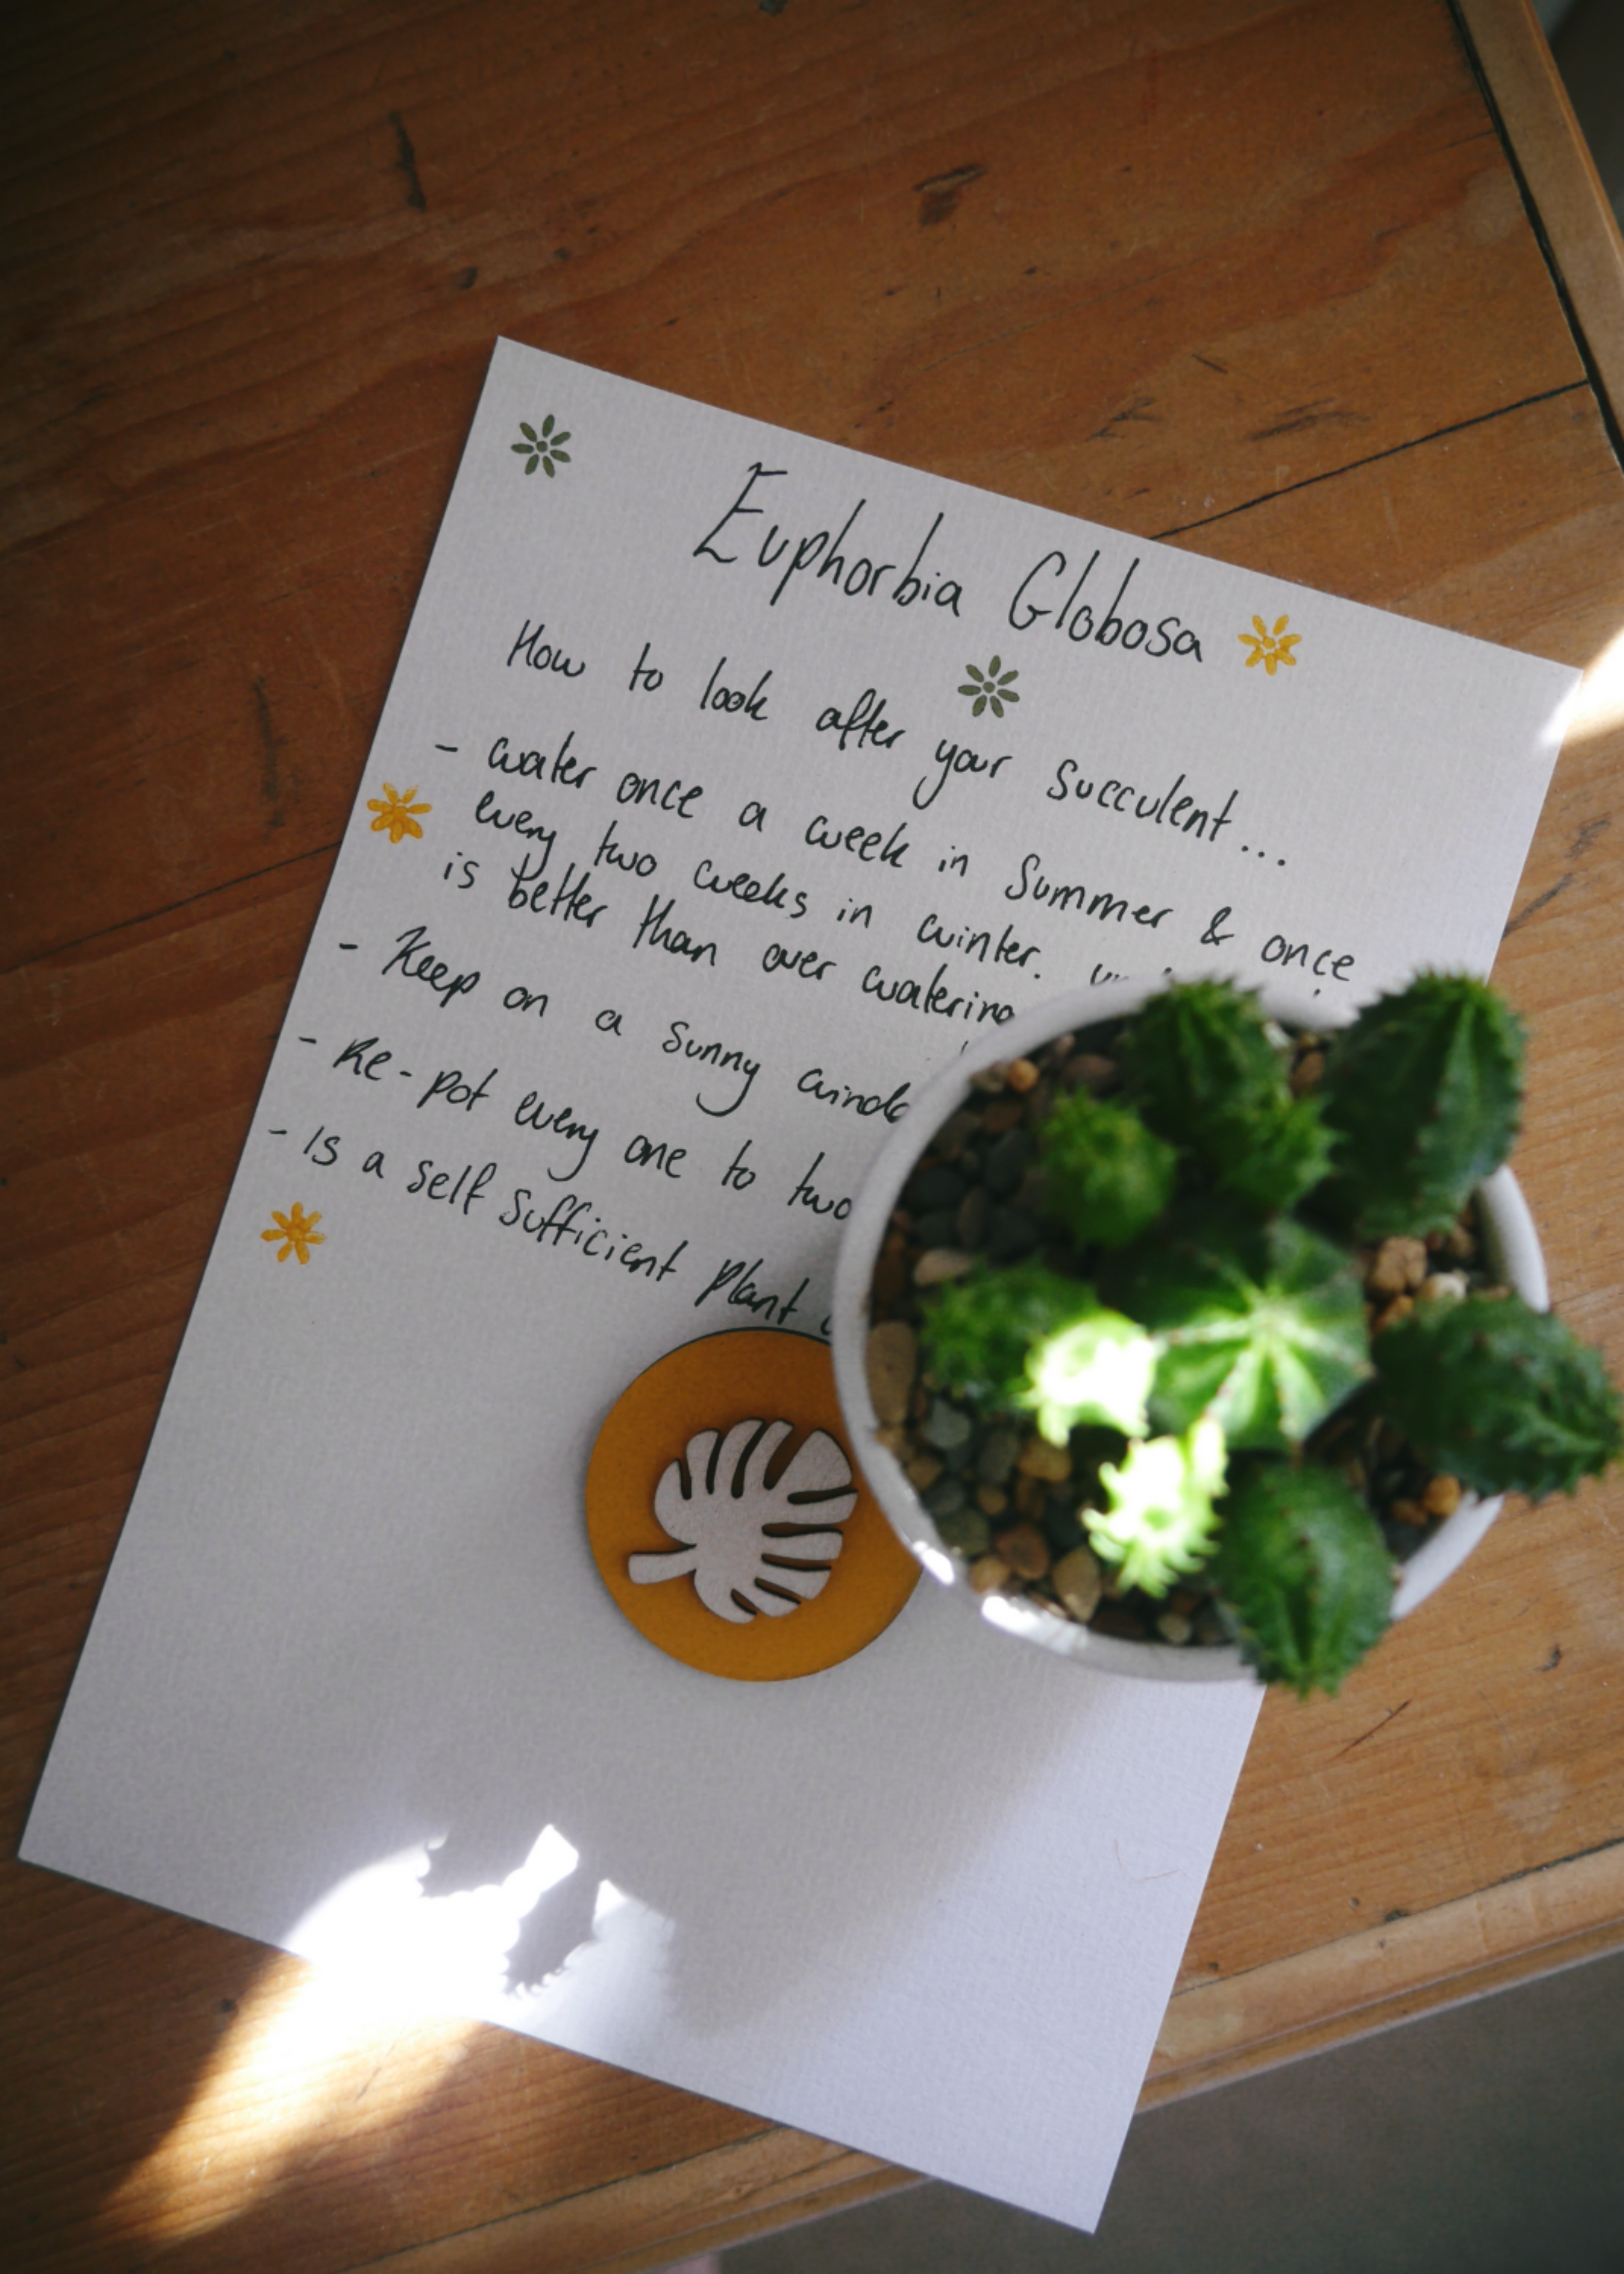 Euphorbia Globosa
How to look after your succulent...
- water once a week in Summer & once
every two weeks in winter.
is better than over
- Keep on a sunny
- Re-pot every one to two
- Is a self sufficient plant